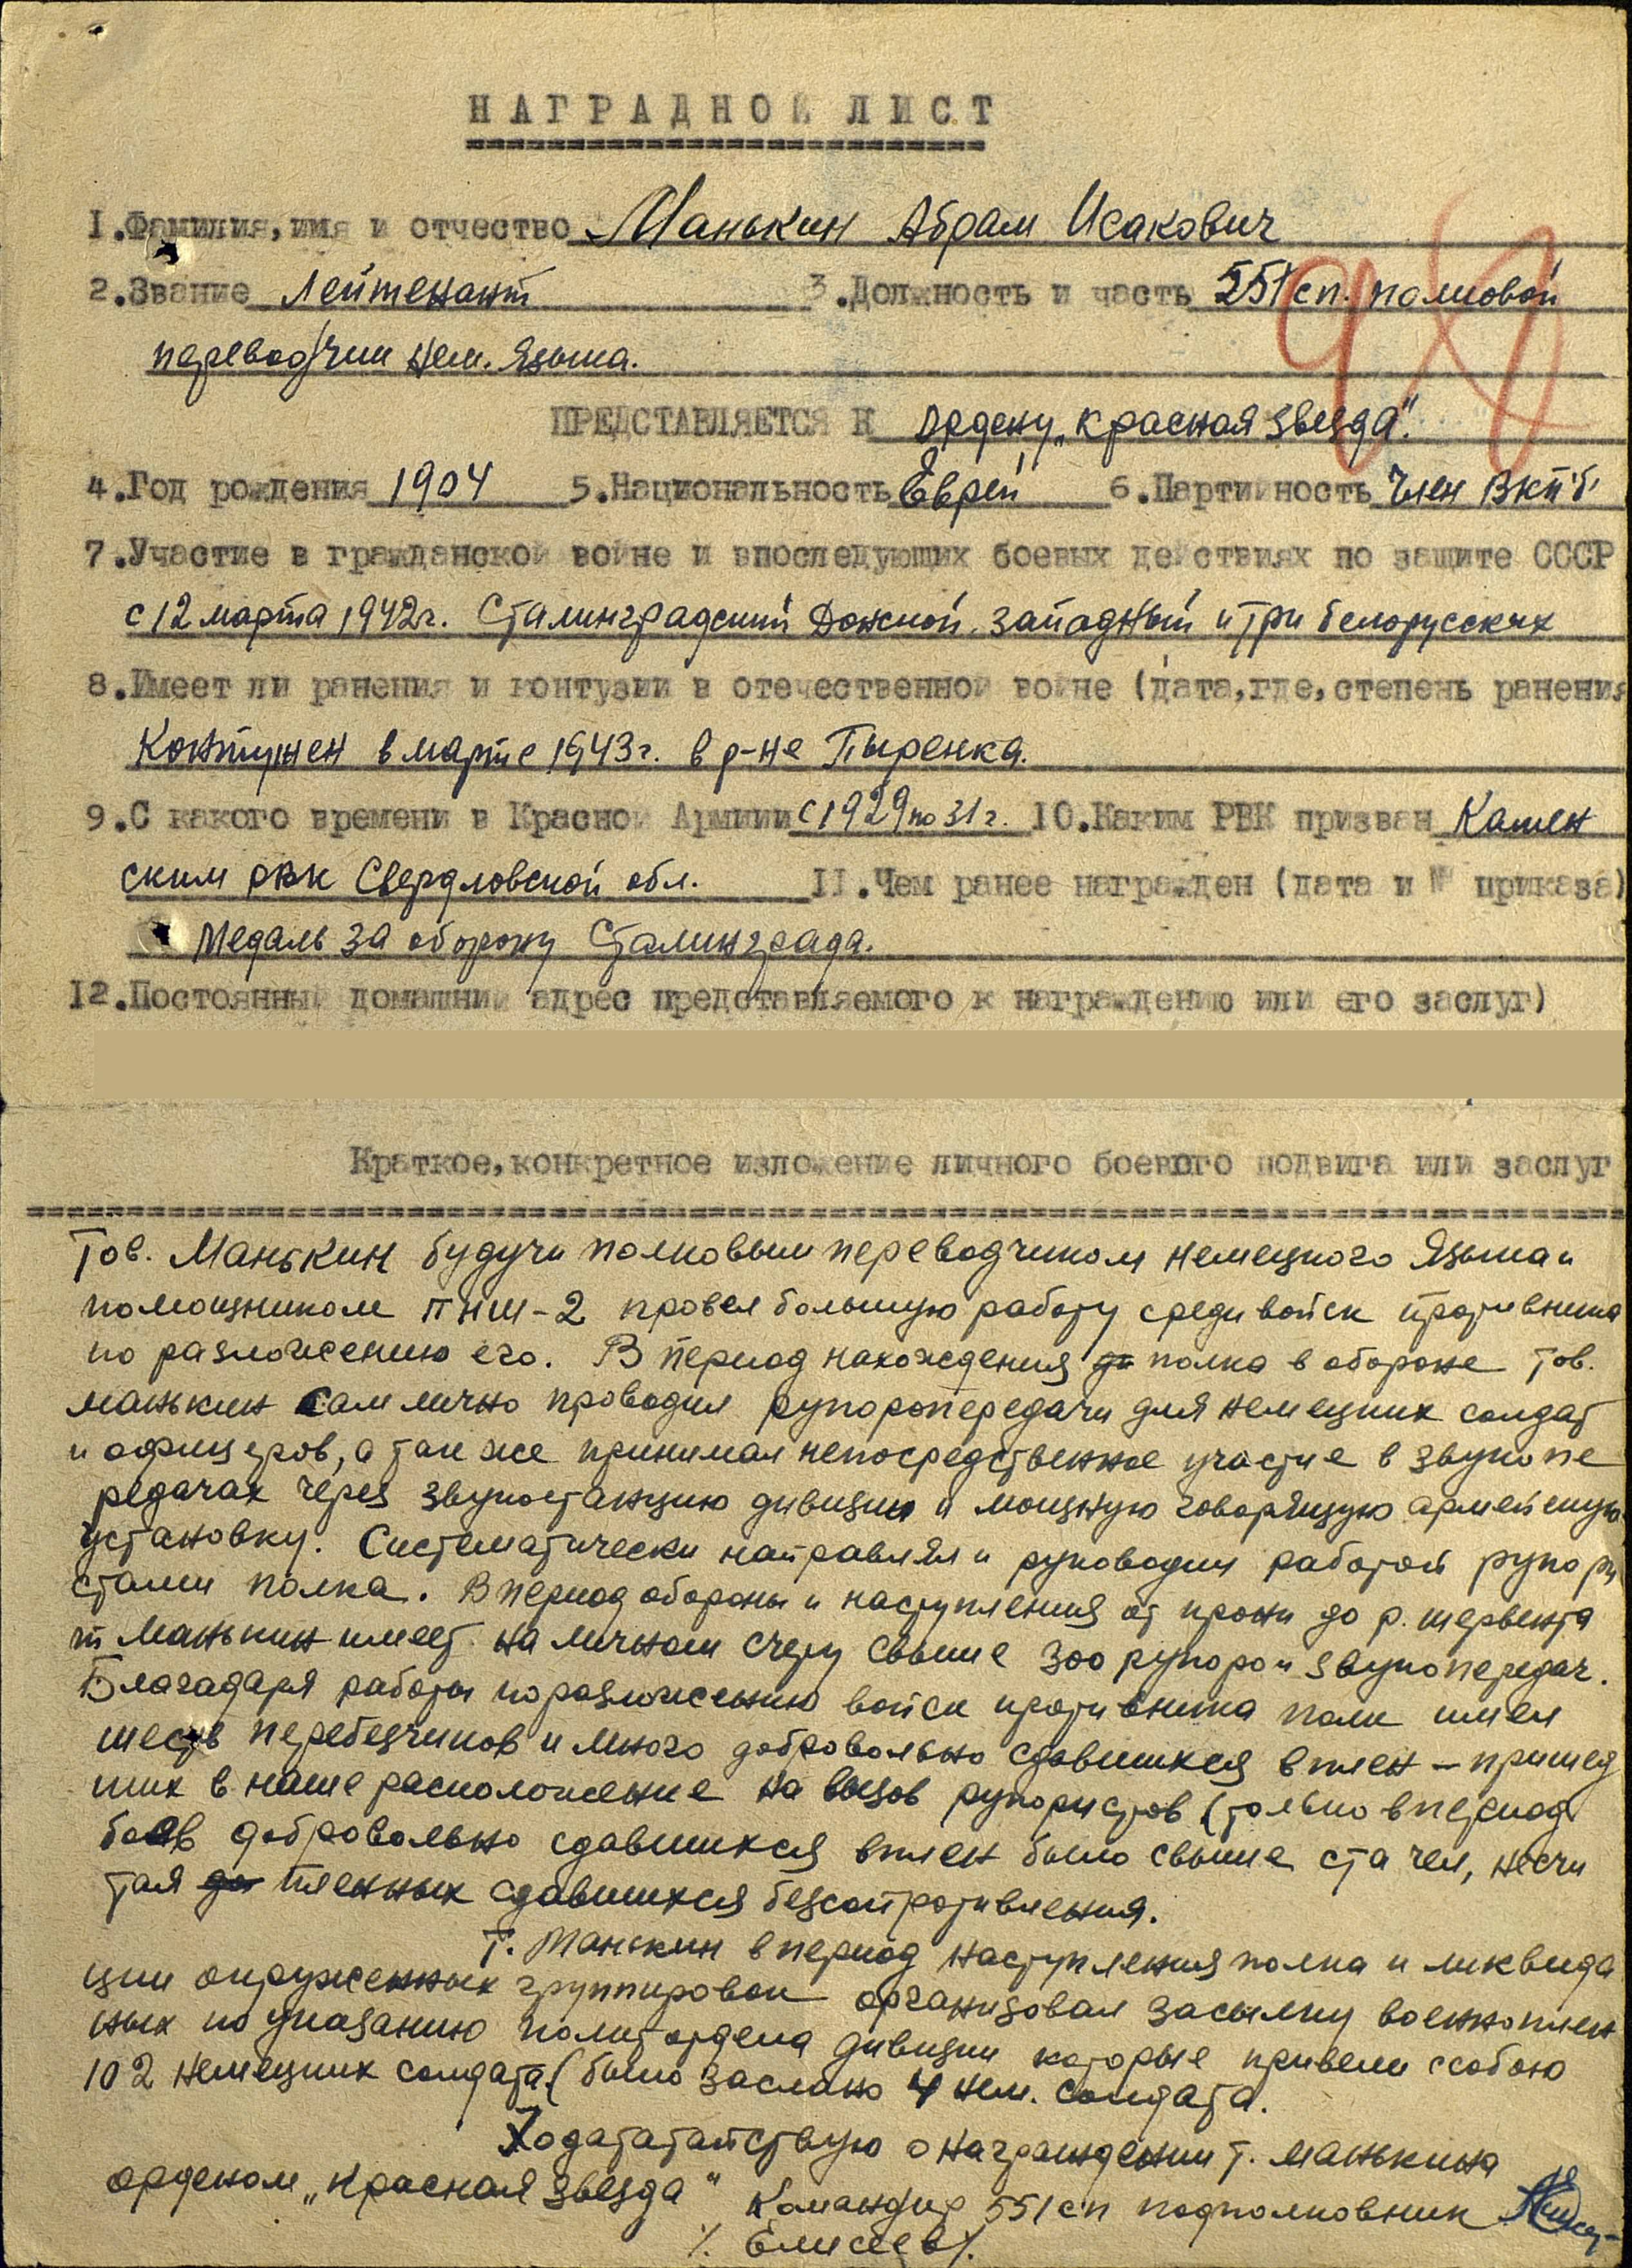 НАГРАДНОЙ ЛИСТ
1.Фамилия, имя и отчество Манькин Абрам Исакович
2.Звание Лейтенант 3.Должность и часть 551 сп. полковой
переводчик нем. языка.
ПРЕДСТАВЛЯЕТСЯ К ордену „Красная Звезда".
4.Год рождения 1904 5.Национальность Еврей 6.Партийность Член ВКП'б'
7.Участие в гражданской войне и впоследующих боевых действиях по защите СССР
с 12 марта 1942г. Сталинградский Донской, западный и три белорусских
8.Имеет ли ранения и контузии в отечественной войне (дата,где,степень ранения
Контужен в марте 1943г. в р-не Пыренка.
9.С какого времени в Красной Армиии с 1929 по 31г. 10.Каким РВК призван Камен
ским рвк Свердловской обл. 11.Чем ранее награжден (дата и № приказа)
Медаль за оборону Сталинграда.
12.Постоянный домашний адрес представляемого к награждению или его заслуг)
Краткое,конкретное изложение личного боевого подвига или заслуг
Тов. Манькин будучи полковым переводчиком немецкого языка и
помощником ПНШ-2 провел большую работу среди войск противника
по разложению его. В период нахождения полка в обороне тов.
манькин сам лично проводил рупоропередачи для немецких солдат
и офицеров, а так же принимал непосредственное участие в звукопе
редачах через звукостанцию дивизии и мощную говорящую армейскую
установку. Систематически направлял и руководил работой рупори
стами полка. В период обороны и наступления от прони до р. шервинта
т Манькин имеет на личном счету свыше 300 рупоро и звукопередач.
Благадаря работы по разложению войск противника полк имел
шесть перебещиков и много добровольно сдавшихся в плен – пришед
ших в наше расположение на вызов рупористов (только в период
боев добровольно сдавшихся в плен было свыше ста чел, несчи
тая пленных сдавшихся безсопротивления.
Т. Манькин в период наступления полка и ликвида
ции окруженных группировок организовал засылку военноплен
ных по указанию политотдела дивизии которые привели ссобою
102 немецких солдата. (было заслано 4 нем. солдата.
Ходататайствую о награждении т. манькина
орденом „Красная Звезда" Командир 551 сп подполковник
/. Елисеев /.